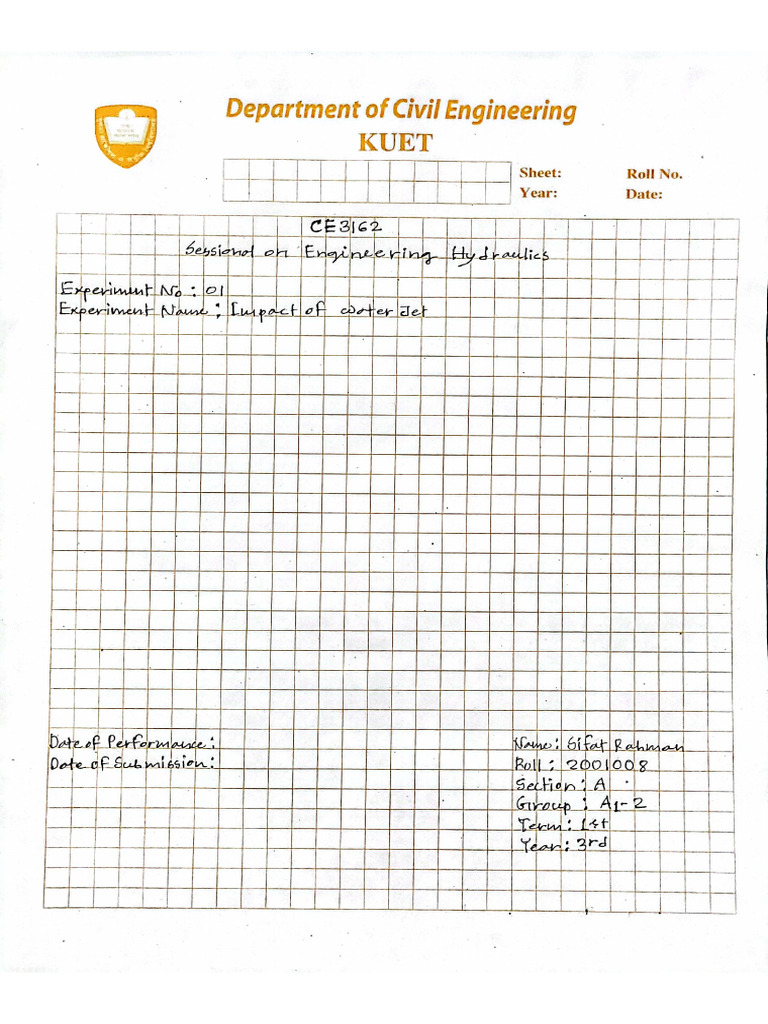 Department of Civil Engineering
KUET
Sheet: Roll No.
Year: Date:
CE3162
Sessional on Engineering Hydraulics
Experiment No : 01
Experiment Name : Impact of water Jet
Date of Performance :
Date of Submission :
Name : Sifat Rahman
Roll : 2001008
Section : A
Group : A1-2
Term : 1st
Year : 3rd